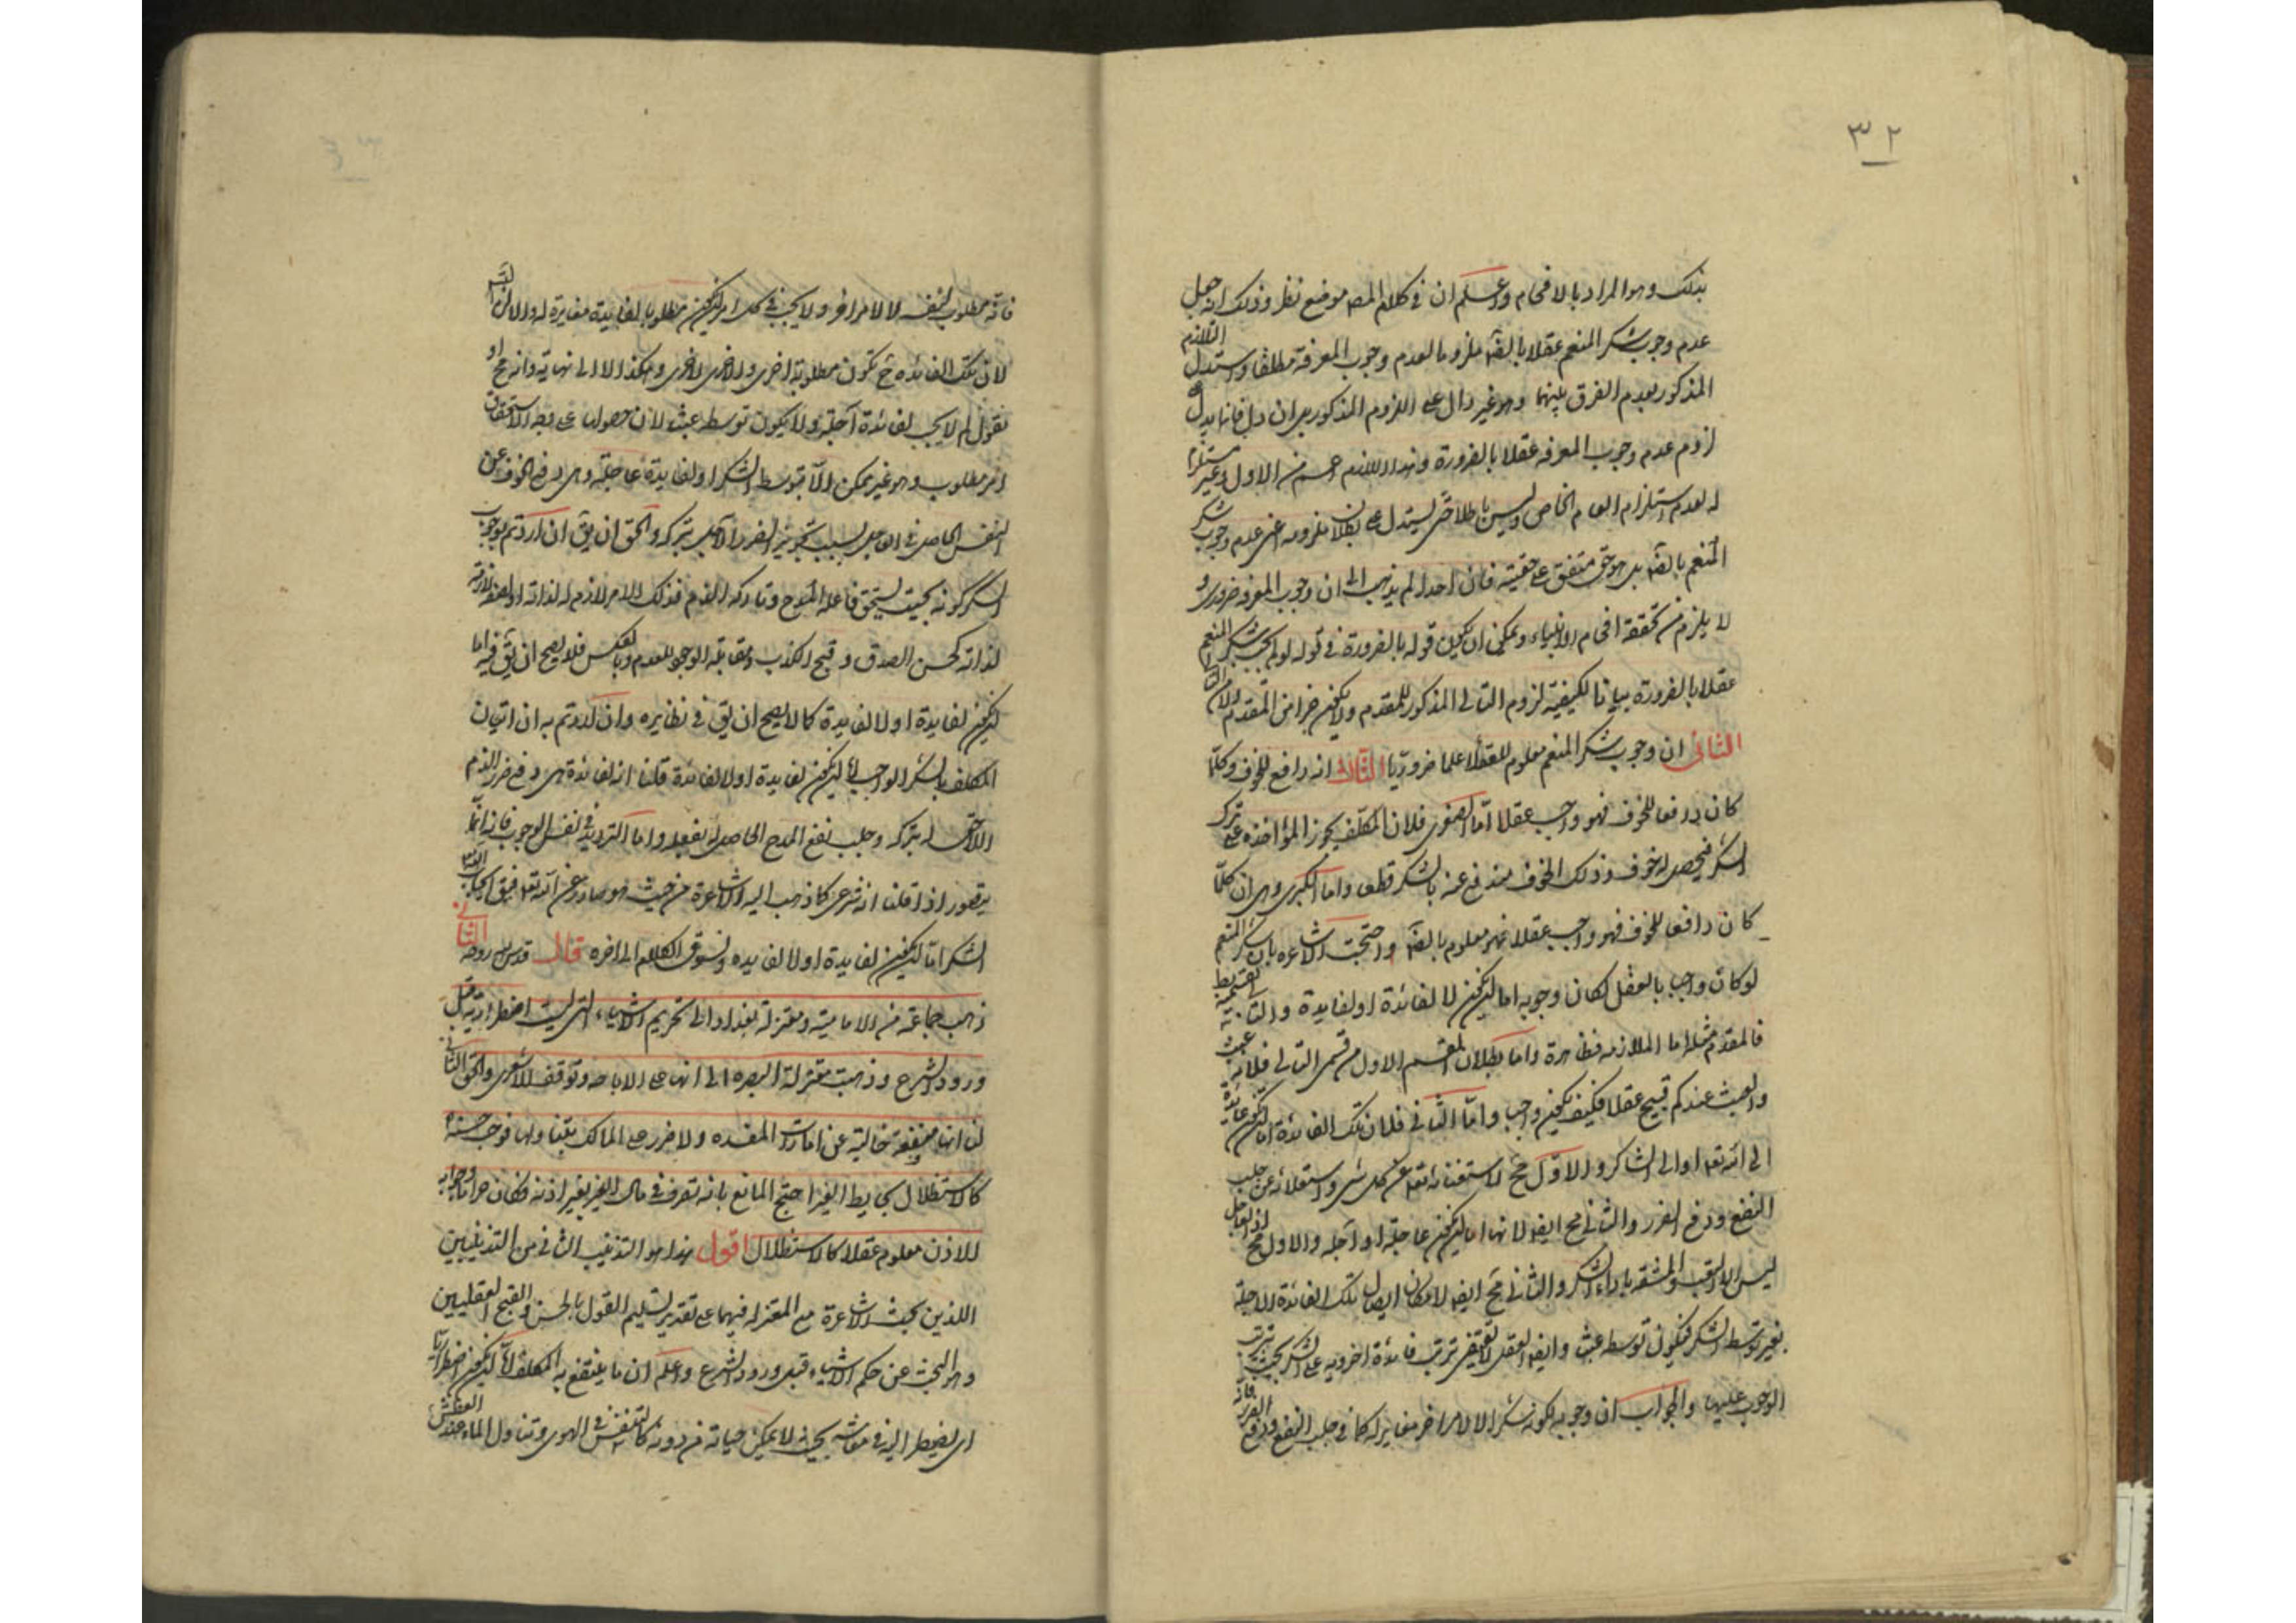 ٣٢
بذلك وهو المراد بالافحام واعلم ان في كلام المص موضع نظر وذلك انه جعل
عدم وجوب شكر المنعم عقلا بالضرة ملزوما لعدم وجوب المعرفة مطلقا واستدل التلازم
المذكور بعدم الفرق بينهما وهو غير دال على اللزوم المذكور بل ان دل فانما يدل على
لزوم عدم وجوب المعرفه عقلا بالضرورة وهذا اللازم اعم من الاول وغير مستلزم
له لعدم استلزام العام الخاص وليس باطلا حتى يستدل على بطلان ملزومه اعنى عدم وجوب شكر
المنعم بالضرة بل هو حق متفق على حقيته فان احدا لم يذهب الى ان وجوب المعرفه ضرورى و
لا يلزم من تحققه افحام الانبياء ويمكن ان يكون قوله بالضرورة في قوله لو لم يجب شكر المنعم
عقلا بالضرورة بيانا لكيفية لزوم التالى المذكور للمقدم ولا يكون جزءا من المقدم
الثانى ان وجوب شكر المنعم معلوم للعقلا علما ضروريا الثالث انه دافع للخوف وكلما
كان دافعا للخوف فهو واجب عقلا اما الصغرى فلان المكلف يجوز المؤاخذه على ترك
الشكر فيحصل له خوف وذلك الخوف مندفع عنه بالشكر قطعا واما الكبرى وهى ان كلما
كان دافعا للخوف فهو واجب عقلا فهو معلوم بالضرة واحتجت الاشاعره بان شكر المنعم
لو كان واجبا بالعقل لكان وجوبه اما ليكون لا لفائدة او لفايدة والتالى بقسميه بط
فالمقدم مثله اما الملازمه فظاهرة واما بطلان القسم الاول من قسمى التالى فلانه عبث
والعبث عندكم قبيح عقلا فكيف يكون واجبا واما الثانى فلان تلك الفائدة اما ليكون عائدة
الى الله تعه او الى الشاكر والاول مح لاستغنائه تعه عن كل شى واستعلائه عن جلب
النفع ودفع الضرر والثانى مح ايضا لانها اما ليكون عاجلة او آجلة والاول مح اذ العاجل
ليس الا التعب والمشقه باداء الشكر والثانى مح ايضا لامكان ايصال تلك الفائدة الاجلة
بغير توسط الشكر فيكون توسطه عبثا وايضا العقل لا يقتضى ترتب فائدة اخرويه على الشكر بحيث يترتب
الوجوب عليها والجواب ان وجوبه لكونه شكرا لا لامر اخر مغاير له كما في جلب النفع ودفع الضرر فانه
فانه مطلوب لنفسه لا لامر اخر ولا يجب في كل امر ليكون مطلوبا لفايدة مغايرة له والا لزم التس
لان تلك الفائده ح تكون مطلوبة لاخرى والاخرى لاخرى وهكذا لا الى نهاية وانه مح او
نقول لم لا يجب لفائدة آجلة ولا يكون توسطه عبثا لان حصولها على وجه الاستحقاق
امر مطلوب وهو غير ممكن الا بتوسط الشكر او لفايدة عاجلة وهى دفع الخوف عن
النفس الحاصل في العاجل بسبب تجويز الضرر الآجل بتركه والحق ان يق ان اردتم بوجوب
الشكر كونه بحيث يستحق فاعله المدح وتاركه الذم فذلك الامر لازم له لذاته او لصفة لازمة
لذاته كحسن الصدق وقبح الكذب ومقابلة الوجود للعدم وبالعكس فلا يصح ان يق فيه اما
ليكون لفايدة اولا لفايدة كما لا يصح ان يق في نظايره وان اردتم به ان اتيان
المكلف بالشكر الواجب اما ليكون لفايدة اولا لفائدة قلنا انه لفائدة هى دفع ضرر الذم
اللاحق له بتركه وجلب نفع المدح الحاصل له بفعله واما الترديد في نفس الوجوب فانه انما
يتصور اذا قلنا انه شرعى كما ذهب اليه الاشاعرة من حيث هو صادر عن الله تعه فيق ايجاب الله
الشكر اما ليكون لفايدة اولا لفايده ونسوق الكلام الى اخره قال قدس روحه الثانى
ذهب جماعة من الامامية ومعتزلة بغداد الى تحريم الاشياء التى ليست اضطرارية قبل
ورود الشرع وذهبت معتزلة البصره الى انها على الاباحه وتوقف الاشعرى والحق الثانى
لنا انها منفعة خالية عن امارات المفسده ولا ضرر على المالك بتناولها فوجب حسنه
كالاستظلال بحايط الغير احتج المانع بانه تصرف في مال الغير بغير اذنه فكان حراما وجوابه
الاذن معلوم عقلا كالاستظلال اقول هذا هو التذنيب الثانى من التذنيبين
اللذين بحث الاشاعرة مع المعتزله فيهما على تقدير تسليم القول بالحسن والقبح العقليين
وهو البحث عن حكم الاشياء قبل ورود الشرع واعلم ان ما ينتفع به المكلف اما ليكون اضطراريا
اى يضطر اليه في معاشه بحيث لا يمكن حياته من دونه كالتنفس في الهوى وتناول الماء عند العطش